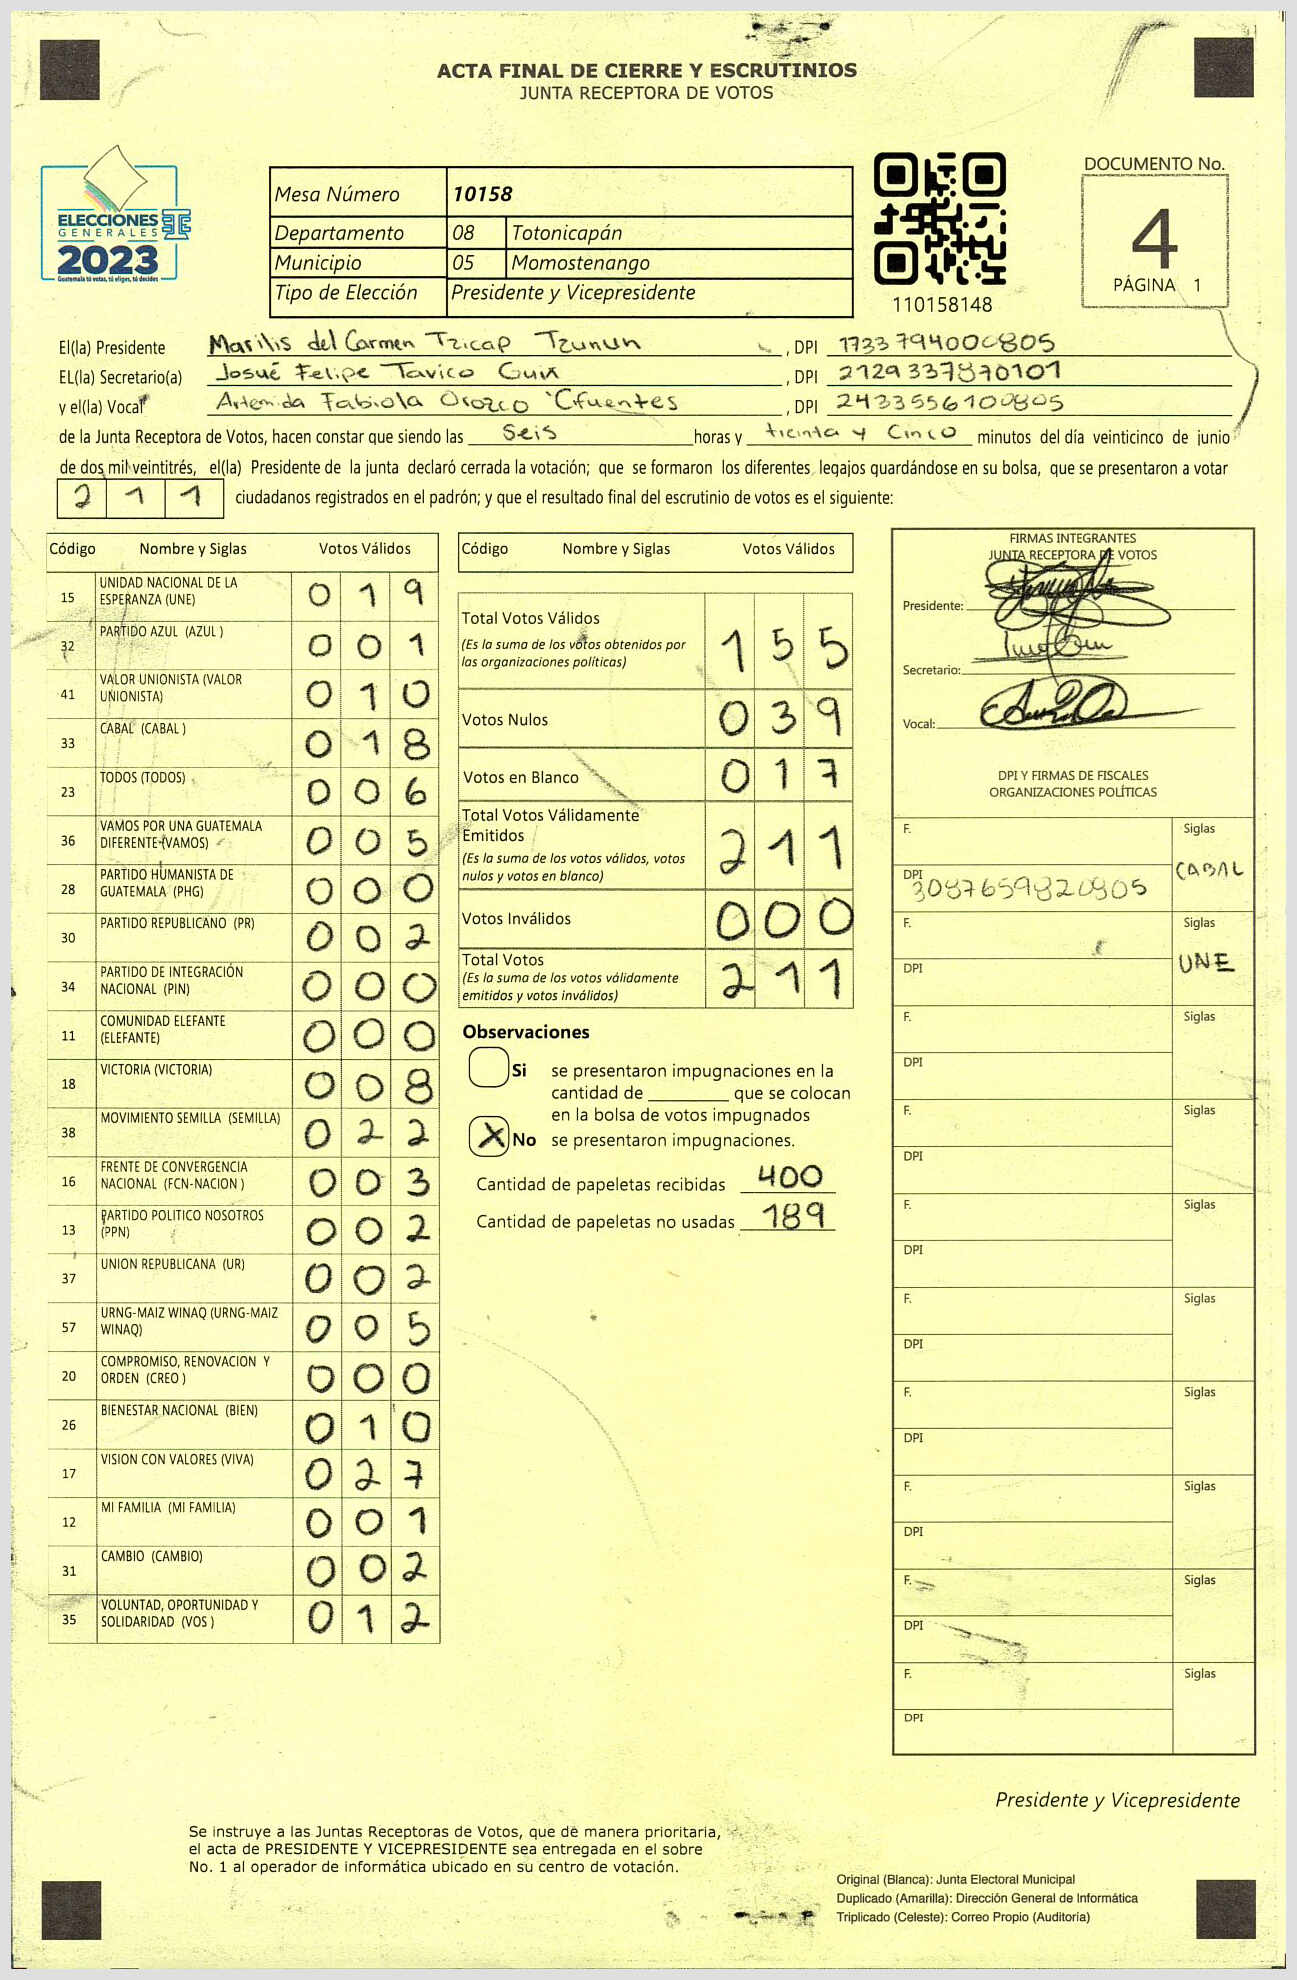 ACTA FINAL DE CIERRE Y ESCRUTINIOS
JUNTA RECEPTORA DE VOTOS
ELECCIONES
GENERALES
2023
Guatemala tú votas, tú eliges, tú decides
Mesa Número 10158
Departamento 08 Totonicapán
Municipio 05 Momostenango
Tipo de Elección Presidente y Vicepresidente
110158148
DOCUMENTO No.
4
PÁGINA 1
El(la) Presidente Marilis del Carmen Tzicap Tzunun , DPI 1733794000805
EL(la) Secretario(a) Josué Felipe Tavico Guix , DPI 2129337870101
y el(la) Vocal Artemida Fabiola Orozco Cifuentes , DPI 2433556100805
de la Junta Receptora de Votos, hacen constar que siendo las Seis horas y treinta y Cinco minutos del día veinticinco de junio
de dos mil veintitrés, el(la) Presidente de la junta declaró cerrada la votación; que se formaron los diferentes legajos quardándose en su bolsa, que se presentaron a votar
2 1 1 ciudadanos registrados en el padrón; y que el resultado final del escrutinio de votos es el siguiente:
Código Nombre y Siglas Votos Válidos
15 UNIDAD NACIONAL DE LA ESPERANZA (UNE) 0 1 9
32 PARTIDO AZUL (AZUL ) 0 0 1
41 VALOR UNIONISTA (VALOR UNIONISTA) 0 1 0
33 CABAL (CABAL ) 0 1 8
23 TODOS (TODOS) 0 0 6
36 VAMOS POR UNA GUATEMALA DIFERENTE (VAMOS) 0 0 5
28 PARTIDO HUMANISTA DE GUATEMALA (PHG) 0 0 0
30 PARTIDO REPUBLICANO (PR) 0 0 2
34 PARTIDO DE INTEGRACIÓN NACIONAL (PIN) 0 0 0
11 COMUNIDAD ELEFANTE (ELEFANTE) 0 0 0
18 VICTORIA (VICTORIA) 0 0 8
38 MOVIMIENTO SEMILLA (SEMILLA) 0 2 2
16 FRENTE DE CONVERGENCIA NACIONAL (FCN-NACION ) 0 0 3
13 PARTIDO POLITICO NOSOTROS (PPN) 0 0 2
37 UNION REPUBLICANA (UR) 0 0 2
57 URNG-MAIZ WINAQ (URNG-MAIZ WINAQ) 0 0 5
20 COMPROMISO, RENOVACION Y ORDEN (CREO ) 0 0 0
26 BIENESTAR NACIONAL (BIEN) 0 1 0
17 VISION CON VALORES (VIVA) 0 2 7
12 MI FAMILIA (MI FAMILIA) 0 0 1
31 CAMBIO (CAMBIO) 0 0 2
35 VOLUNTAD, OPORTUNIDAD Y SOLIDARIDAD (VOS ) 0 1 2
Código Nombre y Siglas Votos Válidos
Total Votos Válidos 1 5 5
(Es la suma de los votos obtenidos por
las organizaciones políticas)
Votos Nulos 0 3 9
Votos en Blanco 0 1 7
Total Votos Válidamente
Emitidos 2 1 1
(Es la suma de los votos válidos, votos
nulos y votos en blanco)
Votos Inválidos 0 0 0
Total Votos 2 1 1
(Es la suma de los votos válidamente
emitidos y votos inválidos)
Observaciones
Si se presentaron impugnaciones en la
cantidad de ________ que se colocan
en la bolsa de votos impugnados
X No se presentaron impugnaciones.
Cantidad de papeletas recibidas 400
Cantidad de papeletas no usadas 189
FIRMAS INTEGRANTES
JUNTA RECEPTORA DE VOTOS
Presidente:
Secretario:
Vocal:
DPI Y FIRMAS DE FISCALES
ORGANIZACIONES POLÍTICAS
F. Siglas
CABAL
DPI 3087659820805
F. Siglas
UNE
DPI
F. Siglas
DPI
F. Siglas
DPI
F. Siglas
DPI
F. Siglas
DPI
F. Siglas
DPI
F. Siglas
DPI
F. Siglas
DPI
F. Siglas
DPI
Presidente y Vicepresidente
Se instruye a las Juntas Receptoras de Votos, que de manera prioritaria,
el acta de PRESIDENTE Y VICEPRESIDENTE sea entregada en el sobre
No. 1 al operador de informática ubicado en su centro de votación.
Original (Blanca): Junta Electoral Municipal
Duplicado (Amarilla): Dirección General de Informática
Triplicado (Celeste): Correo Propio (Auditoría)